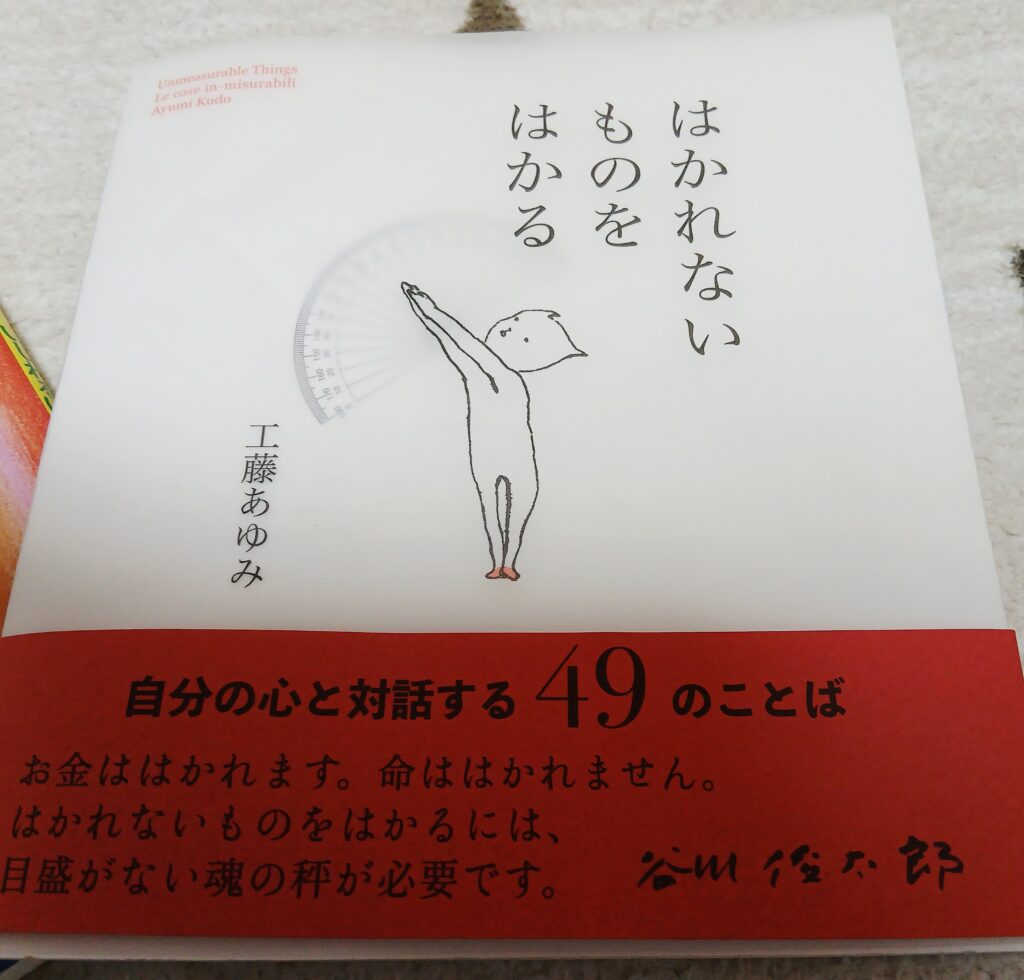 Unmeasurable Things
Le cose in-misurabili
Ayumi Kudo
はかれない
ものを
はかる
工藤あゆみ
自分の心と対話する49のことば
お金ははかれます。命ははかれません。
はかれないものをはかるには、
目盛がない魂の秤が必要です。
谷川俊太郎